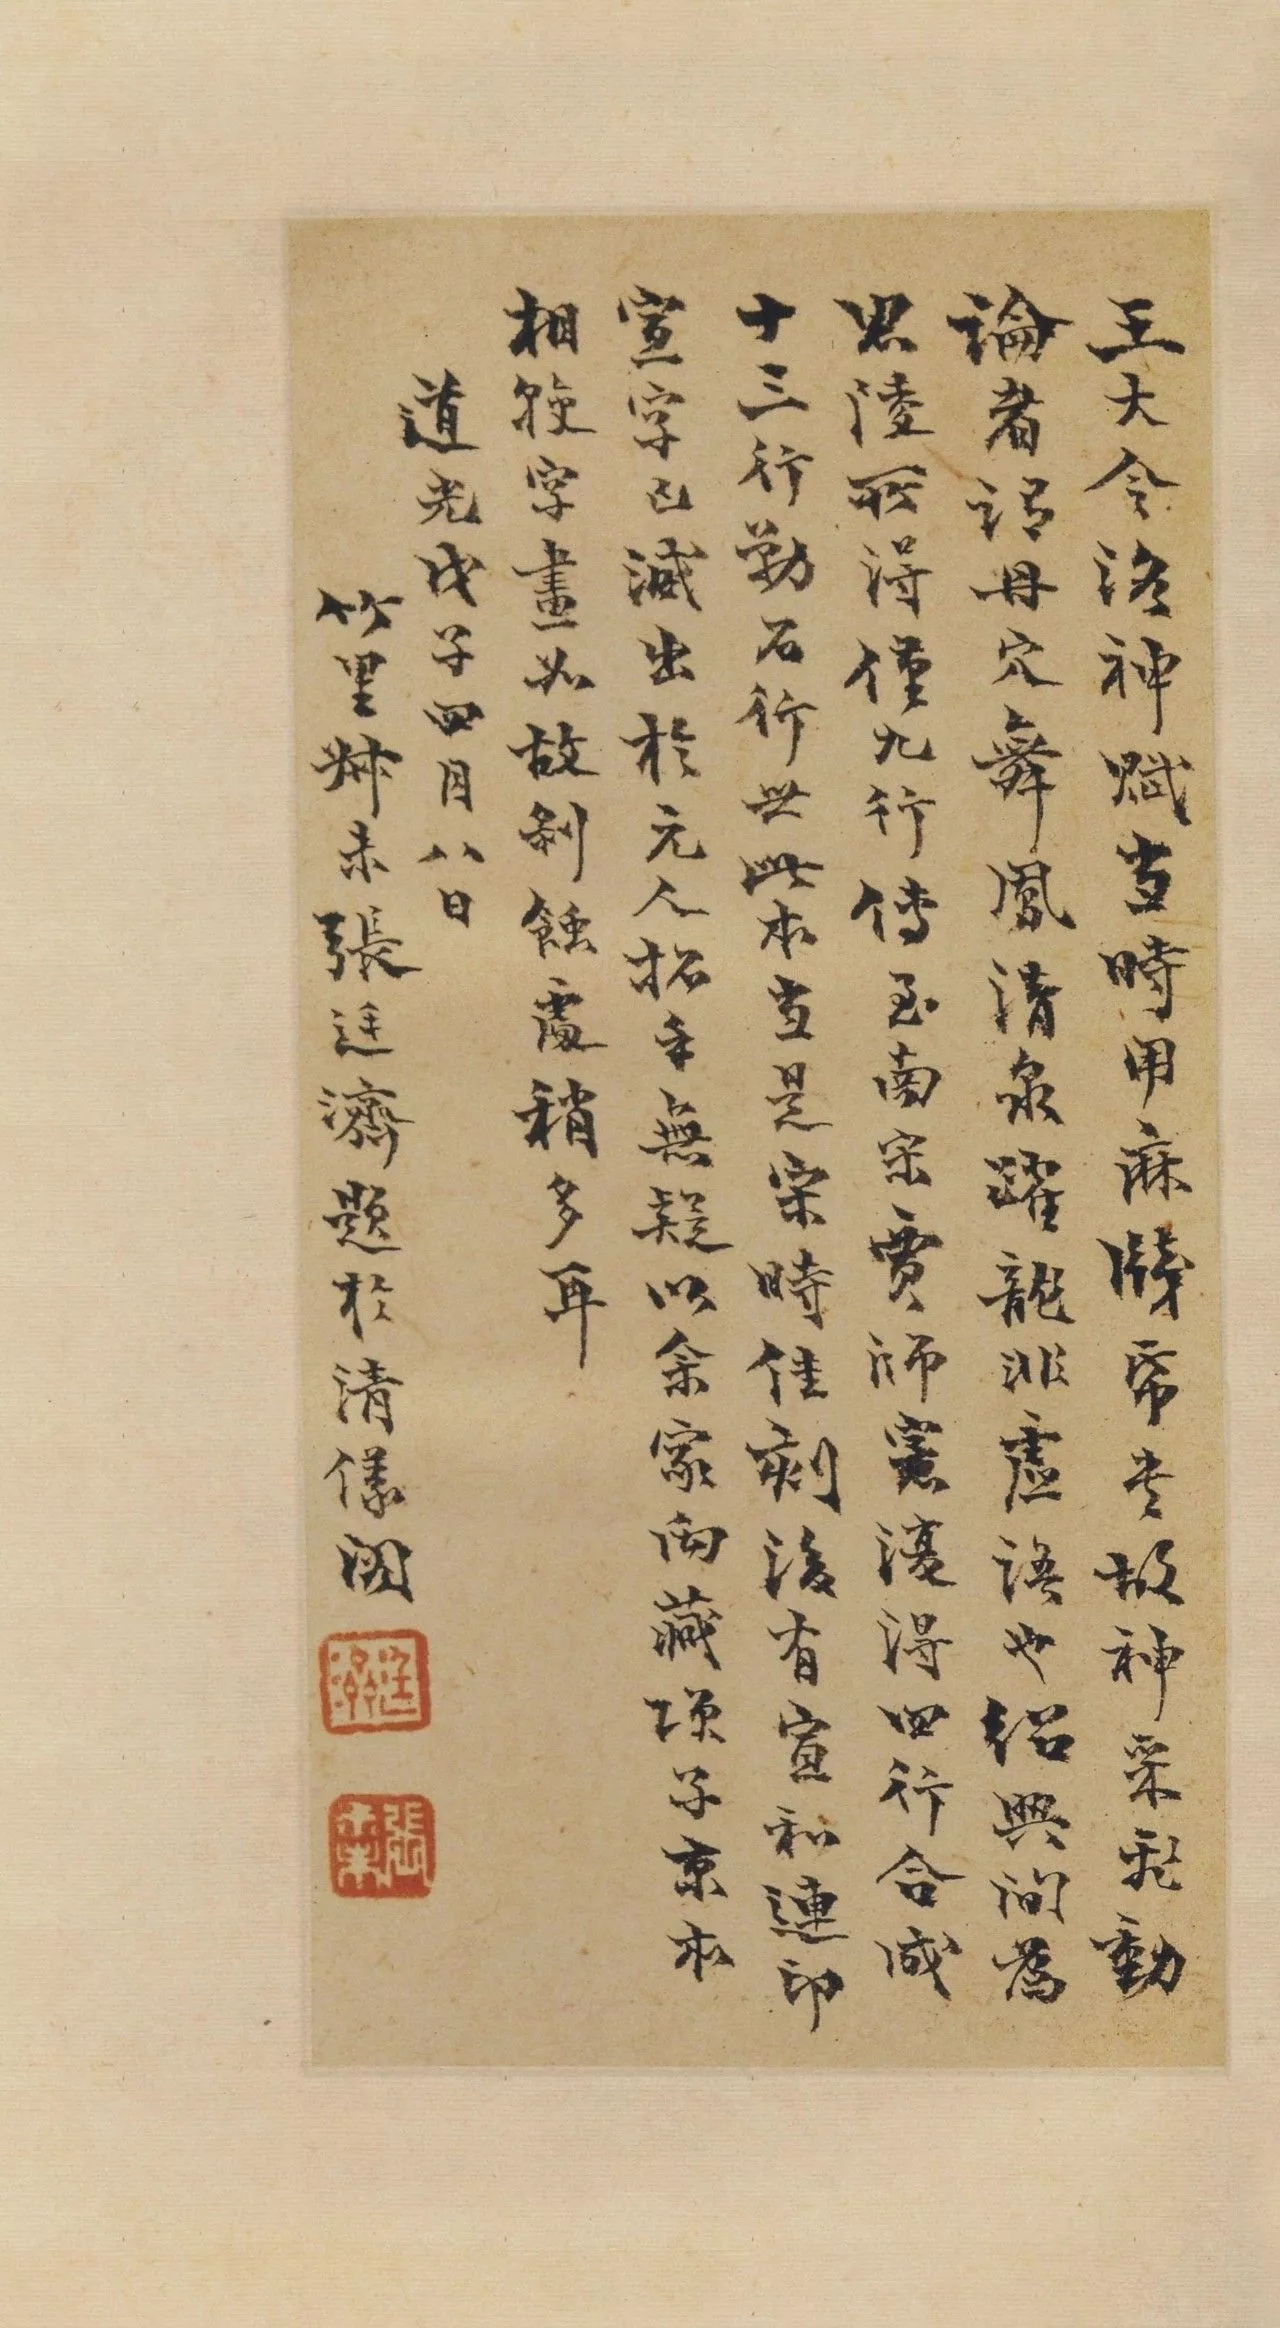 王大令洛神賦當時用麻牋希書故神采飛動
論者謂丹穴舞鳳清泉躍龍非虛語也紹興間為
思陵所得僅九行傳至南宋賈師憲復得四行合成
十三行勒石行世此本當是宋時佳刻後有宣和連印
宣字已減出於元人拓手無疑以余家兩藏項子京本
相較字畫如故剝蝕處稍多耳
道光戊子四月八日
竹里叔未張廷濟題於清儀閣
廷濟
張叔未